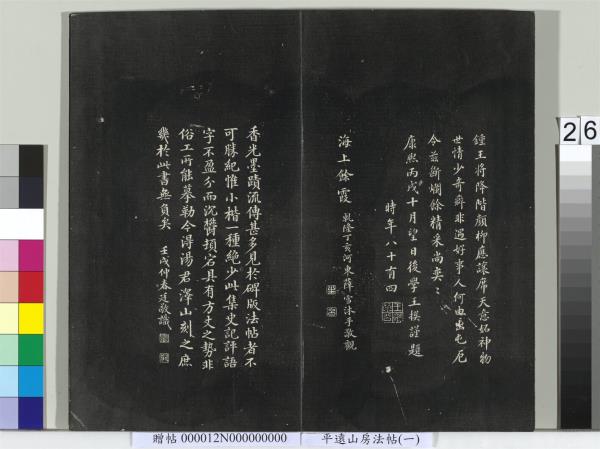 鍾王將降階顏柳應讓席天意妬神物
世情少奇癖非遇好事人何由出屯厄
今茲斷爛餘精采尚奕〻
康熙丙戌十月望日後學王撰謹題
時年八十有四
海上餘霞
乾隆丁亥河東薛雪沐手敬觀
香光墨蹟流傳甚多見於碑版法帖者不
可勝紀惟小楷一種絕少此集史記評語
字不盈分而沉鬱頓宕具有方丈之勢非
俗工所能摹勒今得湯君澤山刻之庶
幾於此書無負矣
壬戌仲春廷敬識
26
贈帖 000012N000000000
平遠山房法帖(一)